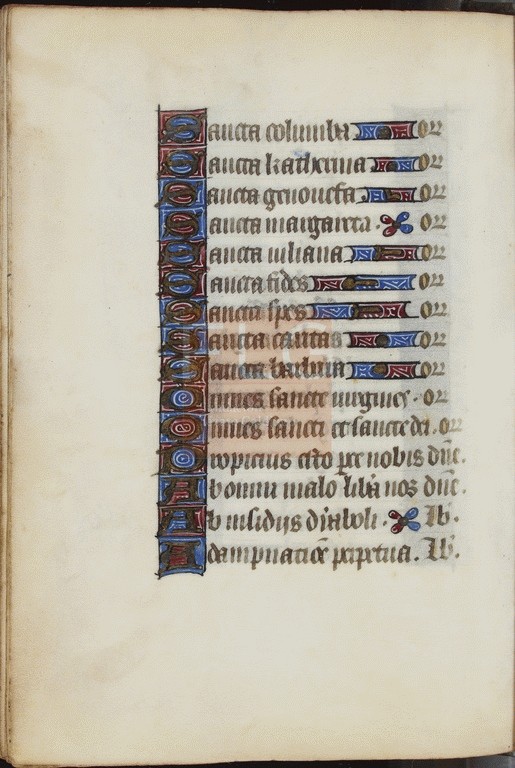 Sancta columba Orr
Sancta katherina Orr
Sancta genouefa Orr
Sancta margareta. Orr
Sancta iuliana Orr
Sancta fides Orr
Sancta spes Orr
Sancta caritas Orr
Sancta barbara Orr
Omnes sancte uirgines. Orr
Omnes sancti et sancte dei. Orr
Propicius esto pce nobis dne.
Ab omni malo liba nos dne.
Ab insidiis dyaboli. Lb.
A dampnatioe perpetua. Lb.